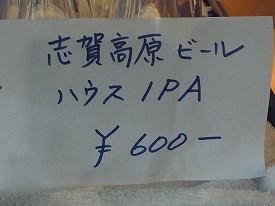 志賀高原ビール
ハウス IPA
¥600−